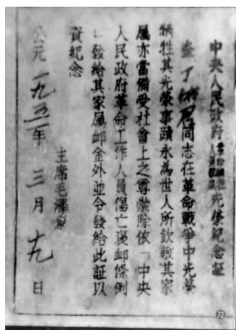 中央人民政府光榮紀念証
同志在革命戰爭中光榮
犧牲其光榮事蹟永為世人所欽敬其家
屬亦當備受社會上之尊崇除依「中央
人民政府革命工作人員傷亡褒卹條例
」發給其家屬卹金外並令發給此証以
資紀念
主席毛澤東
公元一九五二年三月十九日
72